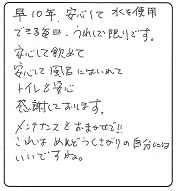 早10年、安心して水を使用
できる毎日、うれしく限りです。
安心して飲めて
安心して風呂にはいれて
トイレも安心
感謝しております。
メンテナンスもおまかせで!!
これは めんどくさがりの自分には
いいですね。